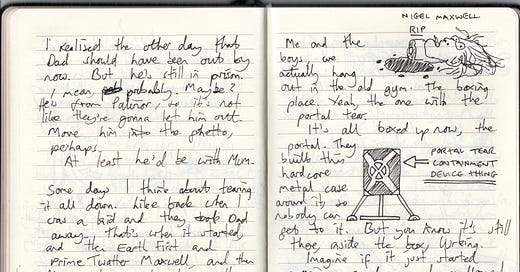 I realised the other day that
Dad should have been out by
now. But he's still in prison.
I mean, probably. Maybe?
He's from Palinor, so it's not
like they're gonna let him out.
Move him into the ghetto,
perhaps.
At least he'd be with Mum.
Some days I think about tearing
it all down. Like back when I
was a kid and they took Dad
away. That's when it started,
and the Earth First and
Prime Twatter Maxwell, and then
NIGEL MAXWELL
RIP
Me and the
boys, we
actually hang
out in the old gym. The boxing
place. Yeah, the one with the
portal tear.
It's all boxed up now, the
portal. They
built this
hardcore
metal case
around it, so
nobody can
get to it. But you know it's still
there, inside the box, lurking.
Imagine if it just started
PORTAL TEAR
CONTAINMENT
DEVICE THING